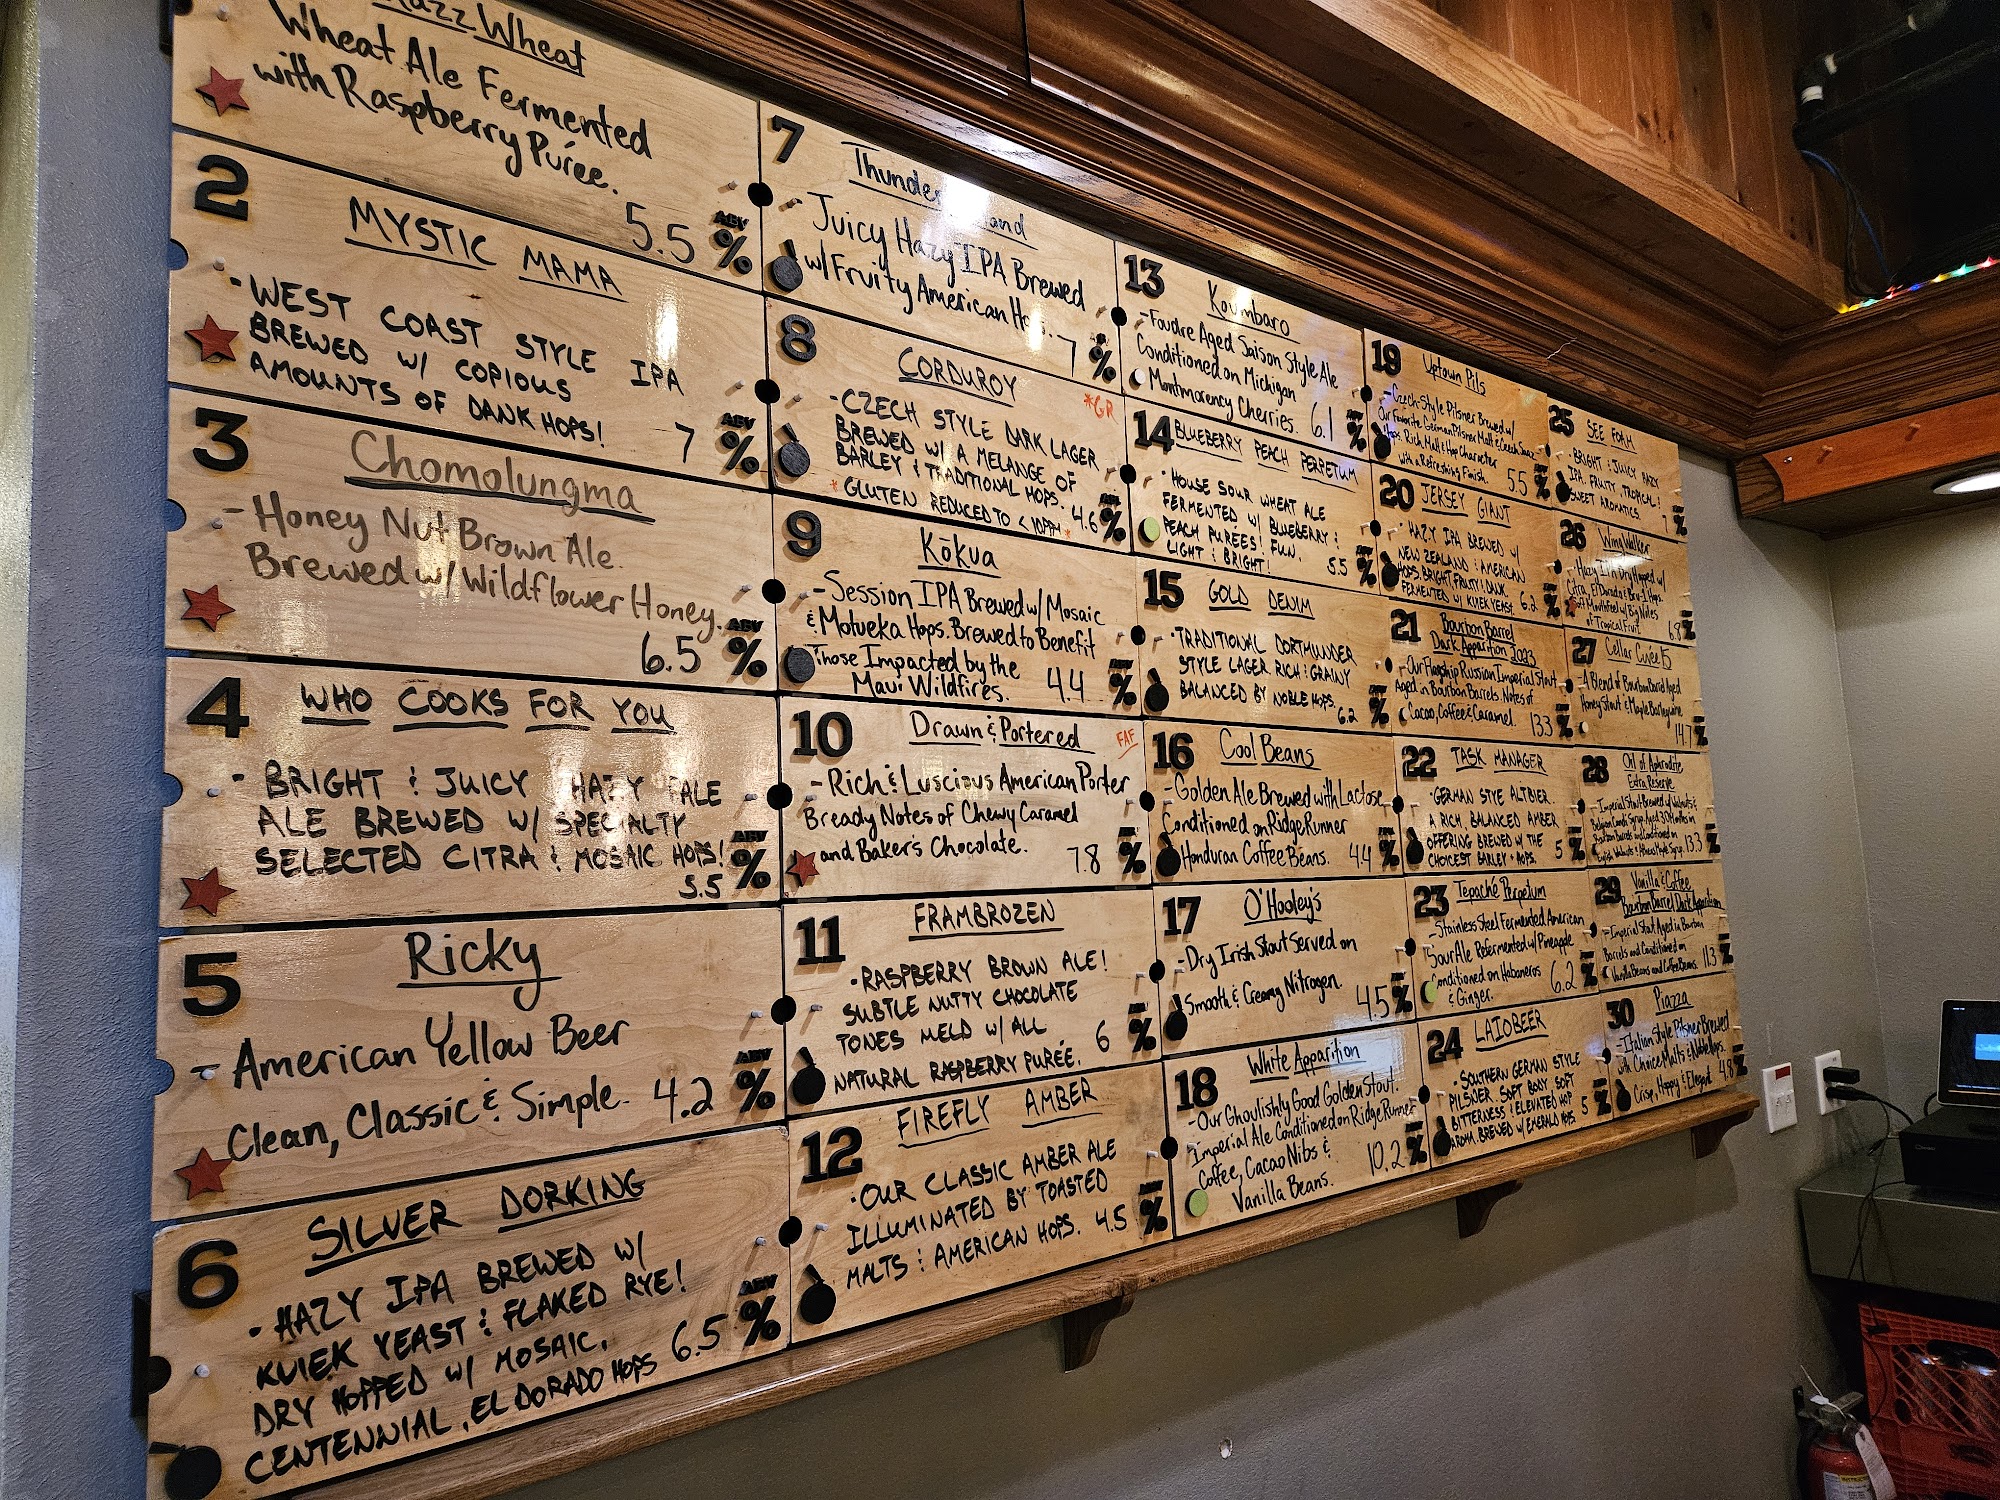 Razz Wheat
Wheat Ale Fermented
with Raspberry Purée.
5.5 ABV %
2
MYSTIC MAMA
- WEST COAST STYLE IPA
BREWED W/ COPIOUS
AMOUNTS OF DANK HOPS!
7 ABV %
3
Chomolungma
- Honey Nut Brown Ale.
Brewed w/ Wildflower Honey.
6.5 ABV %
4
WHO COOKS FOR YOU
- BRIGHT & JUICY HAZY PALE
ALE BREWED W/ SPECIALTY
SELECTED CITRA & MOSAIC HOPS!
5.5 ABV %
5
Ricky
- American Yellow Beer
Clean, Classic & Simple. 4.2 ABV %
6
SILVER DORKING
· HAZY IPA BREWED W/
KVIEK YEAST & FLAKED RYE!
DRY HOPPED W/ MOSAIC,
CENTENNIAL, EL DORADO HOPS 6.5 ABV %
7
- Juicy Hazy IPA Brewed
w/ Fruity American Hops.
7 %
8
CORDUROY
*GR
- CZECH STYLE DARK LAGER
BREWED W/ A MELANGE OF
BARLEY & TRADITIONAL HOPS.
*GLUTEN REDUCED TO <10PPM*
4.6 ABV %
9
Kōkua
- Session IPA Brewed w/ Mosaic
& Motueka Hops. Brewed to Benefit
Those Impacted by the
Maui Wildfires. 4.4 ABV %
10
Drawn & Portered
FAF
- Rich & Luscious American Porter
Bready Notes of Chewy Caramel
and Baker's Chocolate. 7.8 ABV %
11
FRAMBROZEN
· RASPBERRY BROWN ALE!
SUBTLE NUTTY CHOCOLATE
TONES MELD W/ ALL
NATURAL RASPBERRY PURÉE. 6 ABV %
12
FIREFLY AMBER
· OUR CLASSIC AMBER ALE
ILLUMINATED BY TOASTED
MALTS & AMERICAN HOPS. 4.5 ABV %
13
Koumbaro
- Foudre Aged Saison Style Ale
Conditioned on Michigan
Montmorency Cherries. 6.1 ABV %
14
BLUEBERRY PEACH PERPETUM
· HOUSE SOUR WHEAT ALE
FERMENTED W/ BLUEBERRY &
PEACH PURÉES! FUN,
LIGHT & BRIGHT! 5.5 ABV %
15
GOLD DENIM
· TRADITIONAL DORTMUNDER
STYLE LAGER RICH & GRAINY
BALANCED BY NOBLE HOPS. 6.2 ABV %
16
Cool Beans
- Golden Ale Brewed with Lactose
Conditioned on Ridge Runner
Honduran Coffee Beans. 4.4 ABV %
17
O'Hooley's
- Dry Irish Stout Served on
Smooth & Creamy Nitrogen. 4.5 ABV %
18
White Apparition
- Our Ghoulishly Good Golden Stout.
Imperial Ale Conditioned on Ridge Runner
Coffee, Cacao Nibs &
Vanilla Beans. 10.2 ABV %
19
Uptown Pils
- Czech-Style Pilsner Brewed w/
Our Favorite German Pilsner Malt & Czech Saaz
Hops. Rich Malt & Hop Character
with a Refreshing Finish. 5.5 ABV %
20
JERSEY GIANT
· HAZY IPA BREWED W/
NEW ZEALAND & AMERICAN
HOPS. BRIGHT, FRUITY & DANK.
FERMENTED W/ KVIEK YEAST. 6.2 ABV %
21
Bourbon Barrel
Dark Apparition 2023
- Our Flagship Russian Imperial Stout
Aged in Bourbon Barrels. Notes of
Cacao, Coffee & Caramel. 13.3 ABV %
22
TASK MANAGER
· GERMAN STYE ALTBIER.
A RICH, BALANCED AMBER
OFFERING BREWED W/ THE
CHOICEST BARLEY + HOPS. 5 ABV %
23
Tepaché Perpetum
- Stainless Steel Fermented American
Sour Ale Refermented w/ Pineapple
Conditioned on Habaneros
& Ginger. 6.2 ABV %
24
LAIOBEER
· SOUTHERN GERMAN STYLE
PILSNER. SOFT BODY, SOFT
BITTERNESS & ELEVATED HOP
AROMA. BREWED W/ EMERALD HOPS 5 ABV %
25
SEE FOAM
· BRIGHT & JUICY HAZY
IPA. FRUITY, TROPICAL!
SWEET AROMATICS. 7 ABV %
26
WingWalker
- Hazy IPA Dry Hopped w/
Citra, El Dorado & Bru-1 Hops.
Soft Mouthfeel w/ Big Notes
of Tropical Fruit. 6.8 ABV %
27
Cellar Cuvée 5
- A Blend of Bourbon Barrel Aged
Honey Stout & Maple Barleywine.
14.7 ABV %
28
Oil of Aphrodite
Extra Reserve
- Imperial Stout Brewed w/ Walnuts &
Belgian Candi Syrup. Aged 30 Months in
Bourbon Barrels and Conditioned on
English Walnuts & Athens Maple Syrup. 13.3 ABV %
29
Vanilla & Coffee
Bourbon Barrel Dark Apparition
- Imperial Stout Aged in Bourbon
Barrels and Conditioned on
Vanilla Beans and Coffee Beans. 11.3 ABV %
30
Piazza
- Italian Style Pilsner Brewed
with Choice Malts & Noble Hops.
Crisp, Hoppy & Elegant. 4.8 ABV %